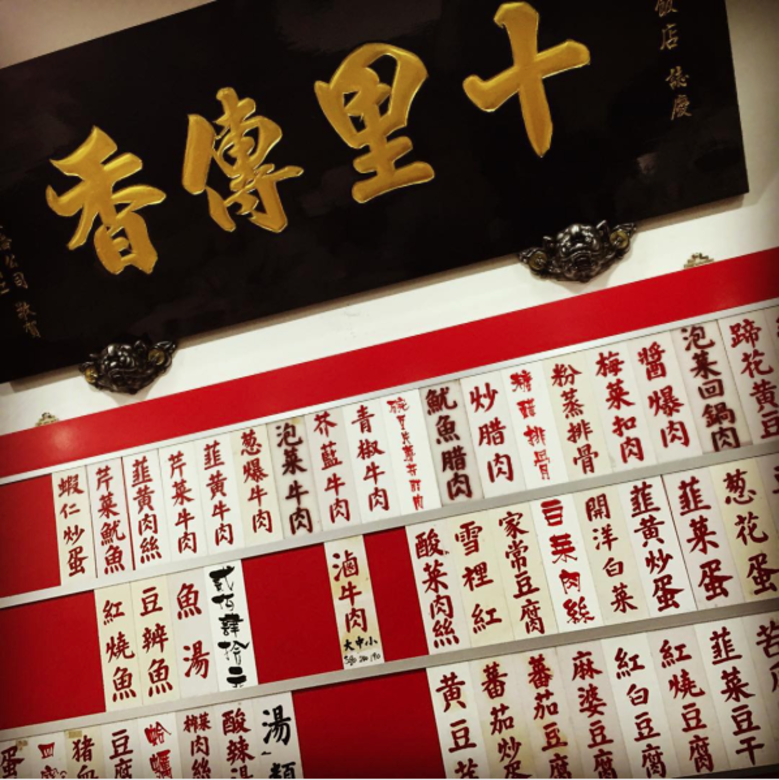 飯店 誌慶
十里傳香
公司 敬賀
蹄花黃豆
泡菜回鍋肉
醬爆肉
梅菜扣肉
粉蒸排骨
糖醋排骨
炒腊肉
魷魚腊肉
青椒牛肉
芥藍牛肉
泡菜牛肉
葱爆牛肉
韮黃牛肉
芹菜牛肉
韮黃肉絲
芹菜魷魚
蝦仁炒蛋
葱花蛋
韮菜蛋
韮黃炒蛋
開洋白菜
白菜肉絲
家常豆腐
雪裡紅
酸菜肉絲
滷牛肉
大中小
貳佰肆拾元
魚湯
豆瓣魚
紅燒魚
韮菜豆干
紅燒豆腐
紅白豆腐
麻婆豆腐
蕃茄豆腐
蕃茄炒蛋
黃豆
湯類
酸辣湯
榨菜肉絲
蛤蠣
豆腐
猪血
蛋